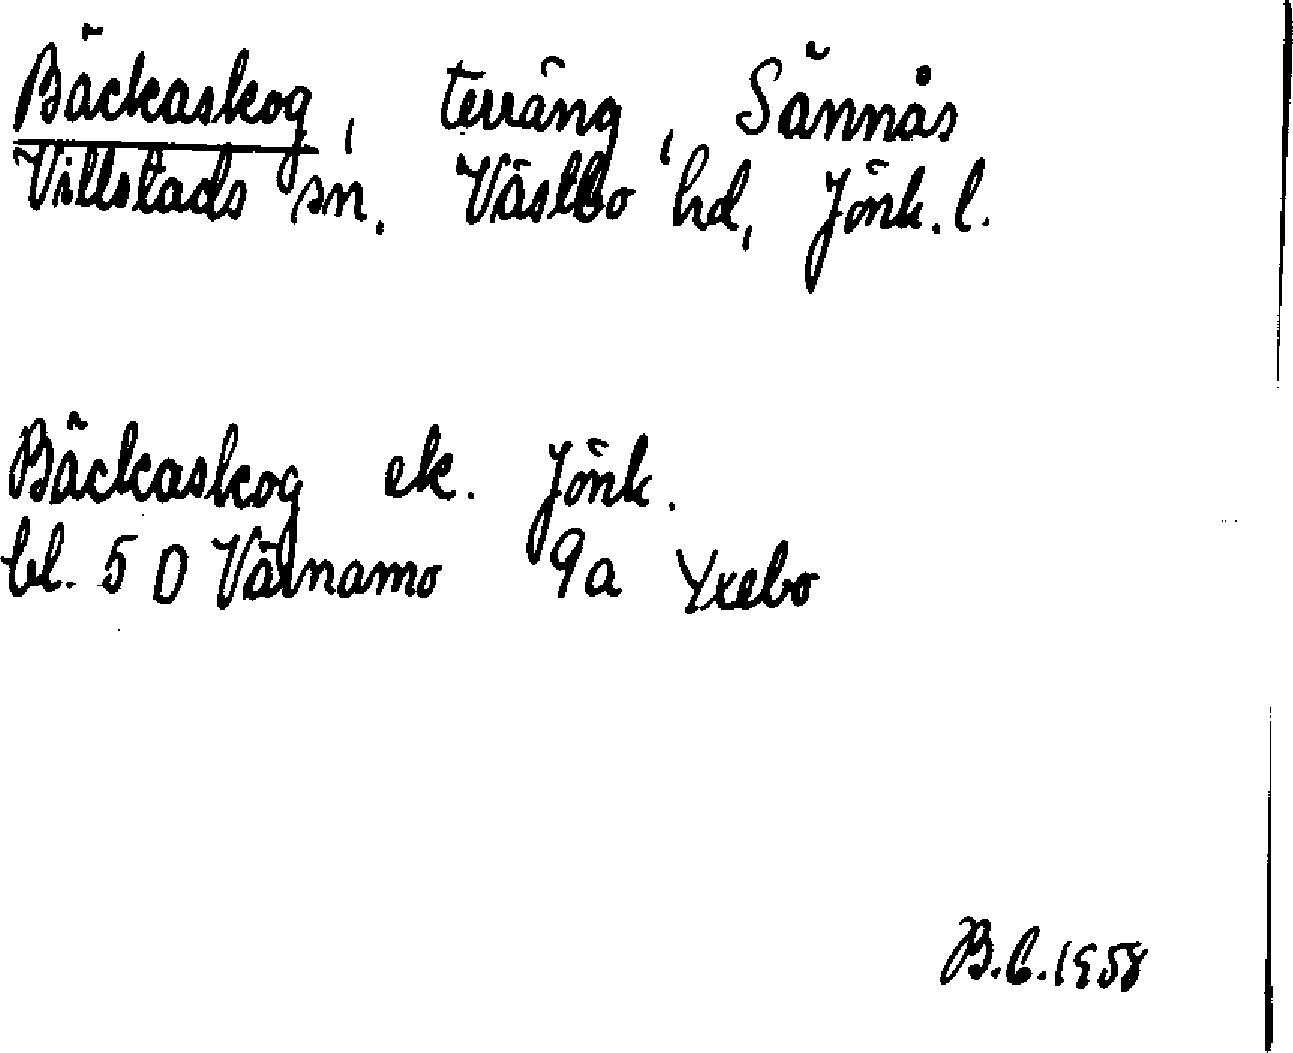 Bäckaskog, terräng, Sännås
Villstads sn. Västbo hd, Jönk. l.
Bäckaskog ek. Jönk.
bl. 5 D Värnamo 9a Yxebo
B.C.1958